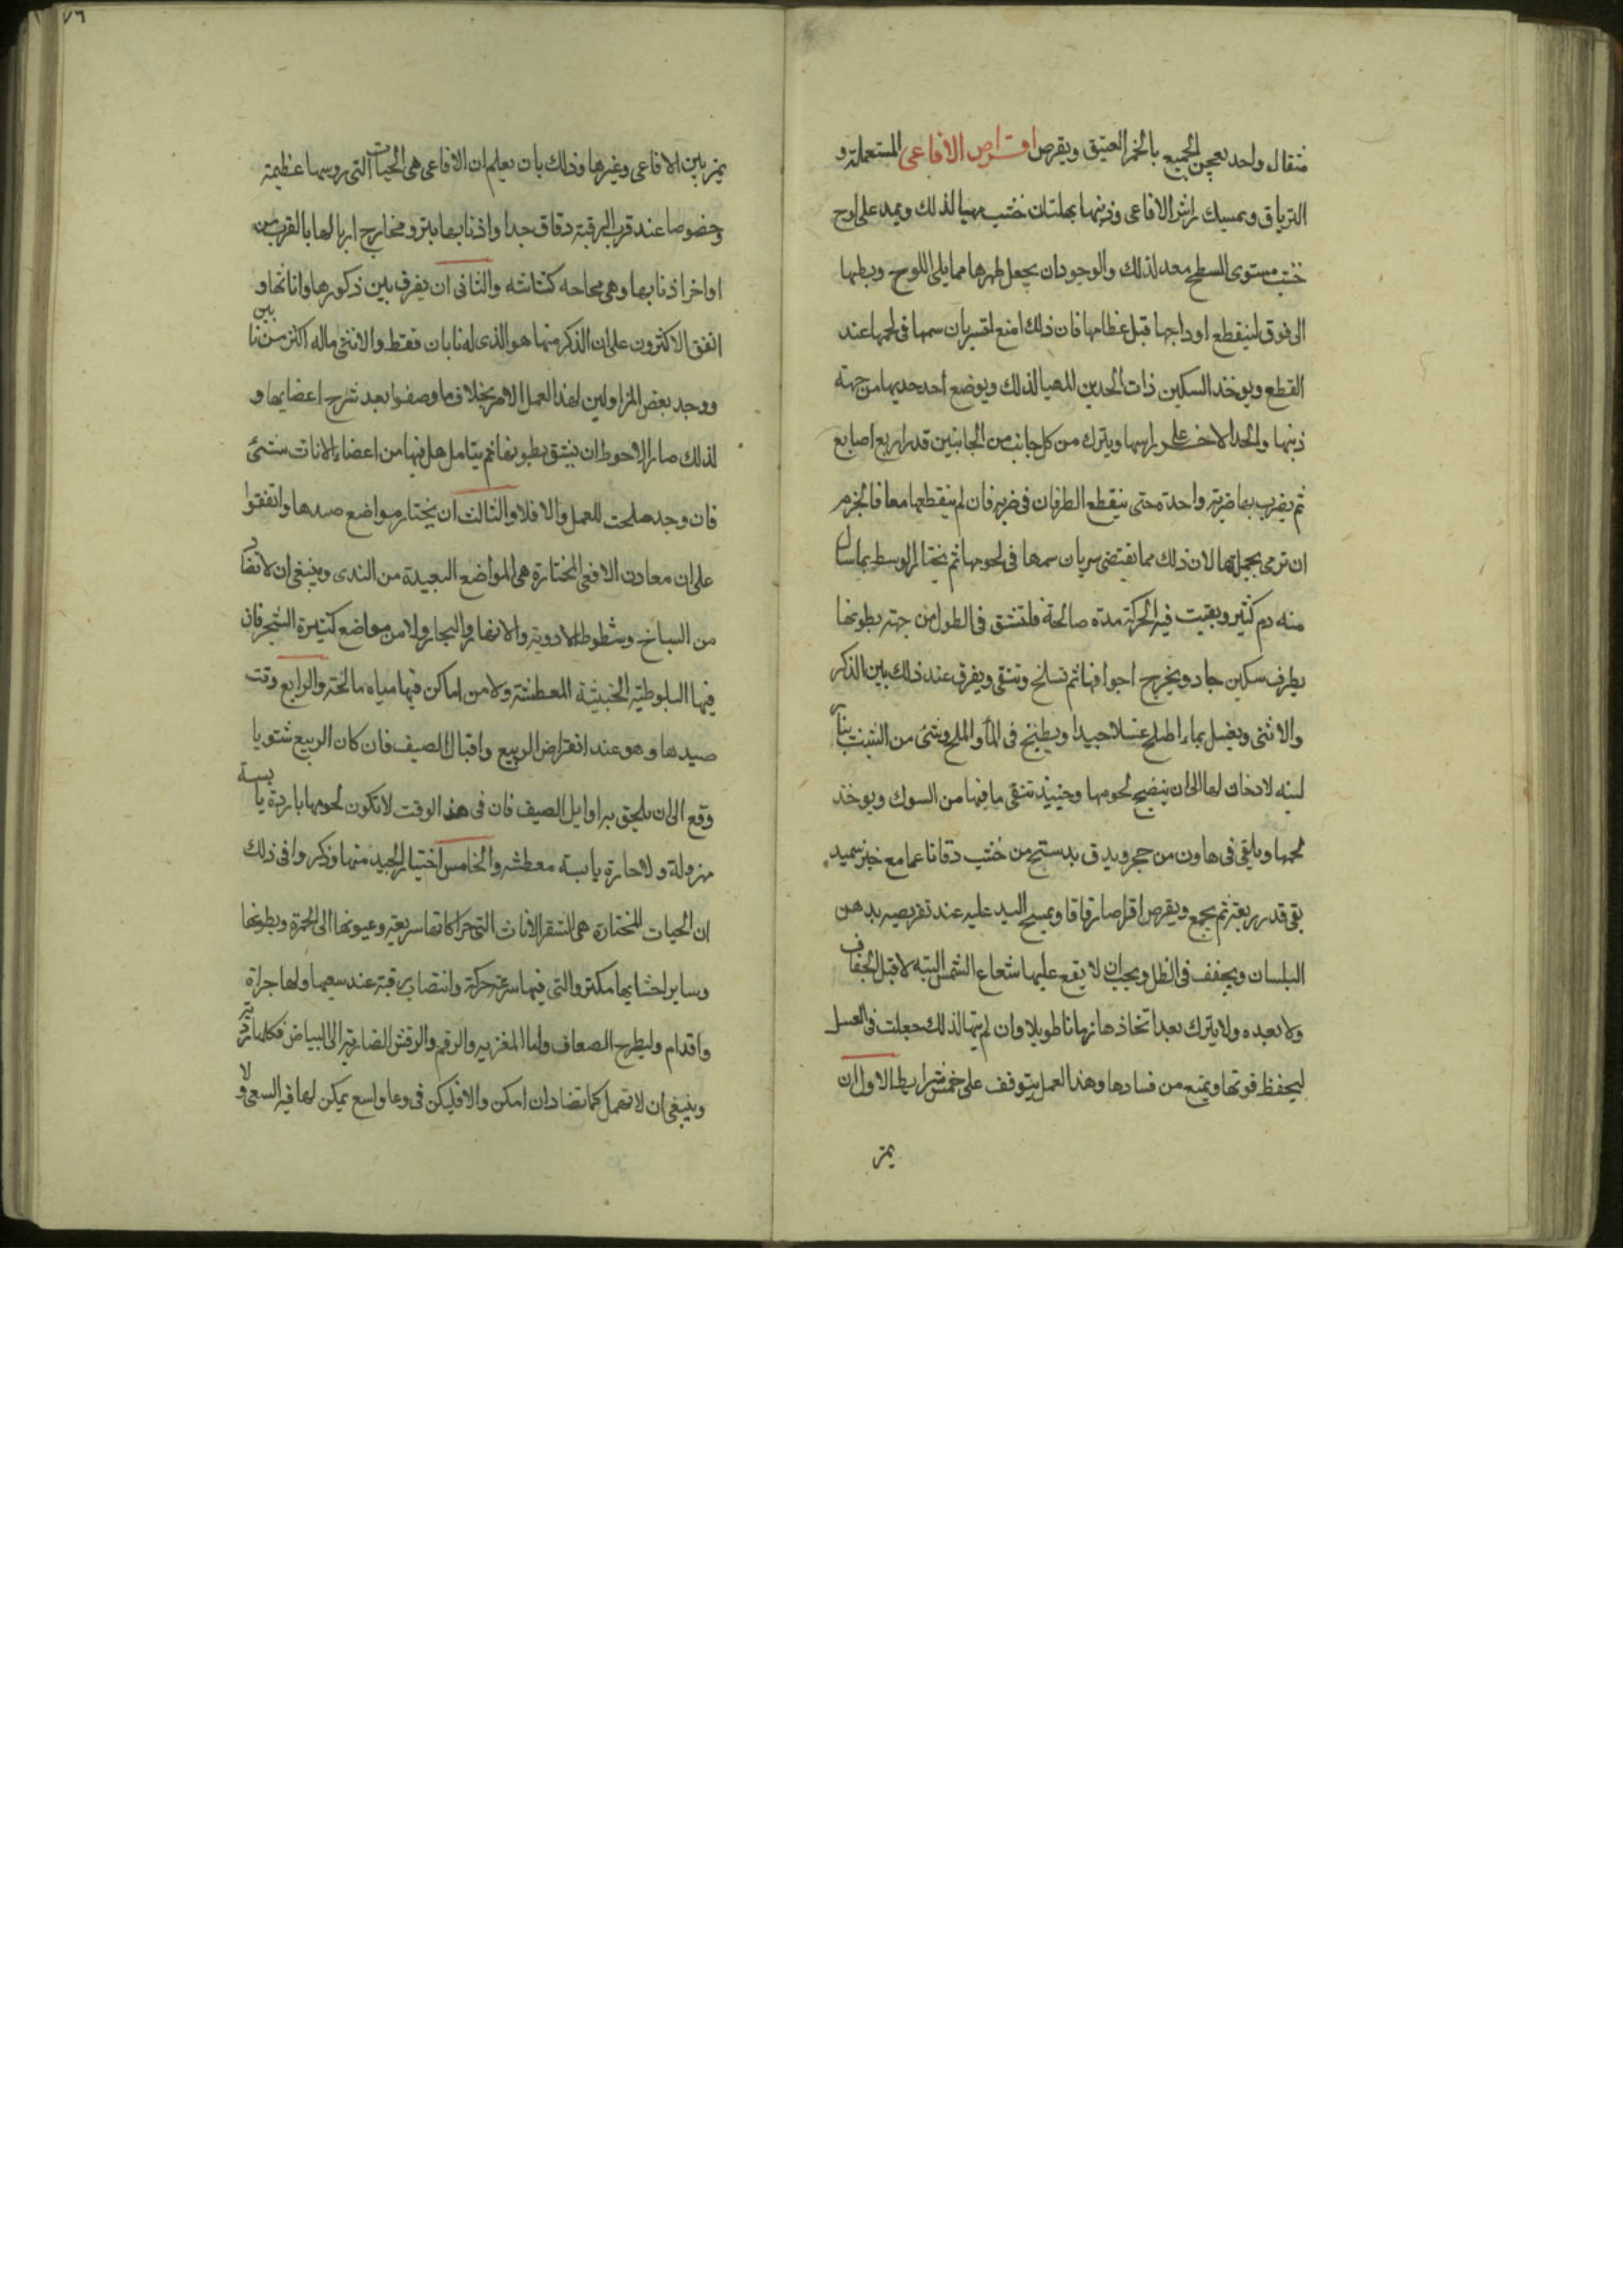 مثقال واحد يعجن الجميع بالخمر العتيق ويقرص اقراص الافاعى المستعملة و
الترياق ويمسك راس الافاعى وذنبها بهلتان خشب مهيا لذلك ويمد على لوح
خشب مستوى السطح معد لذلك والوجودان يجعل ظهرها مما يلى اللوح وبطنها
الى فوق لينقطع اوداجها قبل عظامها فان ذلك امنع لسريان سمها فى لحمها عند
القطع ويوخذ السكين ذات الحدين المهيا لذلك ويوضع احد حديها من جهة
ذنبها والحد الاخر على راسها ويترك من كل جانب من الجانبين قدر اربع اصابع
ثم يضرب بها ضربة واحدة حتى ينقطع الطرفان فى ضربه فان لم ينقطعها معا فالحزم
ان ترمى بجملتها لان ذلك مما تقتضى سريان سمها فى لحومها ثم يختار الوسط بما سال
منه دم كثير وبقيت فيه الحركة مدة صالحة فلتشق فى الطول من جهة بطونها
بطرف سكين حاد ويخرج اجوافها ثم تسلخ وتنقى ويفرق عند ذلك بين الذكر
والانثى وتغسل بماء اطلح غسلا جيدا ويطبخ فى الماء والملح وشئ من الشبت بنار
لينه لا دخان لها الى ان ينضج لحومها وحينيذ تنقى ما فيها من السوك ويوخذ
لحمها ويلقى فى هاون من حجر ويدق بدستج من خشب دقا ناعما مع خبز سميد
بقى قدر ربعة ثم يجمع ويقرص اقراصا رقاقا ويمسح اليد عليه عند تقريصه بدهن
البلسان ويجفف فى الظل ويجب ان لا يقع عليها شعاع الشمس البته لا قبل الجفاف
ولا بعده ولا يترك بعد اتخاذها زمانا طويلا وان لم يتهيا لذلك جعلت فى العسل
ليحفظ قوتها ويمنع من فسادها وهذا العمل يتوقف على خمس شرايط الاول ان
يمز
٧٦
يمز بين الافاعى وغيرها وذلك بان يعلم ان الافاعى هى الحيات التى روسها عظيمة
وخصوصا عند قرب الرقبة دقاق جدا واذنابها بتر و مخارج ازبالها بالقرب من
اواخر اذنابها وهى محاحه كشاشه والثانى ان يفرق بين ذكورها واناثها و
اتفق الاكثرون على ان الذكر منها هو الذى له نابان فقط والانثى ماله اكثر من نابين
ووجد بعض المزاولين لهذا العمل الامر بخلاف ما وصفوا بعد شرح اعضايها و
لذلك صار الاحوط ان تشق بطونها ثم يتامل هل فيها من اعضاء الاناث شئ
فان وجد صلحت للعمل والا فلا والثالث ان يختار مواضع صيدها واتفقوا
على ان معادن الافعى المختارة هى المواضع البعيدة من الندى وينبغى ان لا تصاد
من السباخ وشطوط الاودية والانهار والبحار ولا من مواضع كثيرة الشجر فان
فيها البلوطيه الخبيثة المعطشة ولا من اماكن فيها مياه مالحة والرابع وقت
صيدها وهو عند انقراض الربيع واقبال الصيف فان كان الربيع شتويا
وقع الى ان يلحق به اوايل الصيف فان فى هذا الوقت لا تكون لحومها باردة يابسة
مهزولة ولا حارة يابسة معطشه والخامس اختيار الجيد منها وذكروا فى ذلك
ان الحيات المختارة هى الشقر الاناث التى حركاتها سريعه وعيونها الى الحمرة وبطونها
وساير احشايها مكتر والتى فيها سرعة حركة وانتصاب رقبة عند سعيها ولها جراة
واقدام وليطرح الضعاف واما المغزبر والرقم والرقش الضاربة الى البياض فكلها ردية
وينبغى ان لا تهمل كما تصاد ان امكن والا فليكن فى وعا واسع يمكن لها فيه السعى ولا